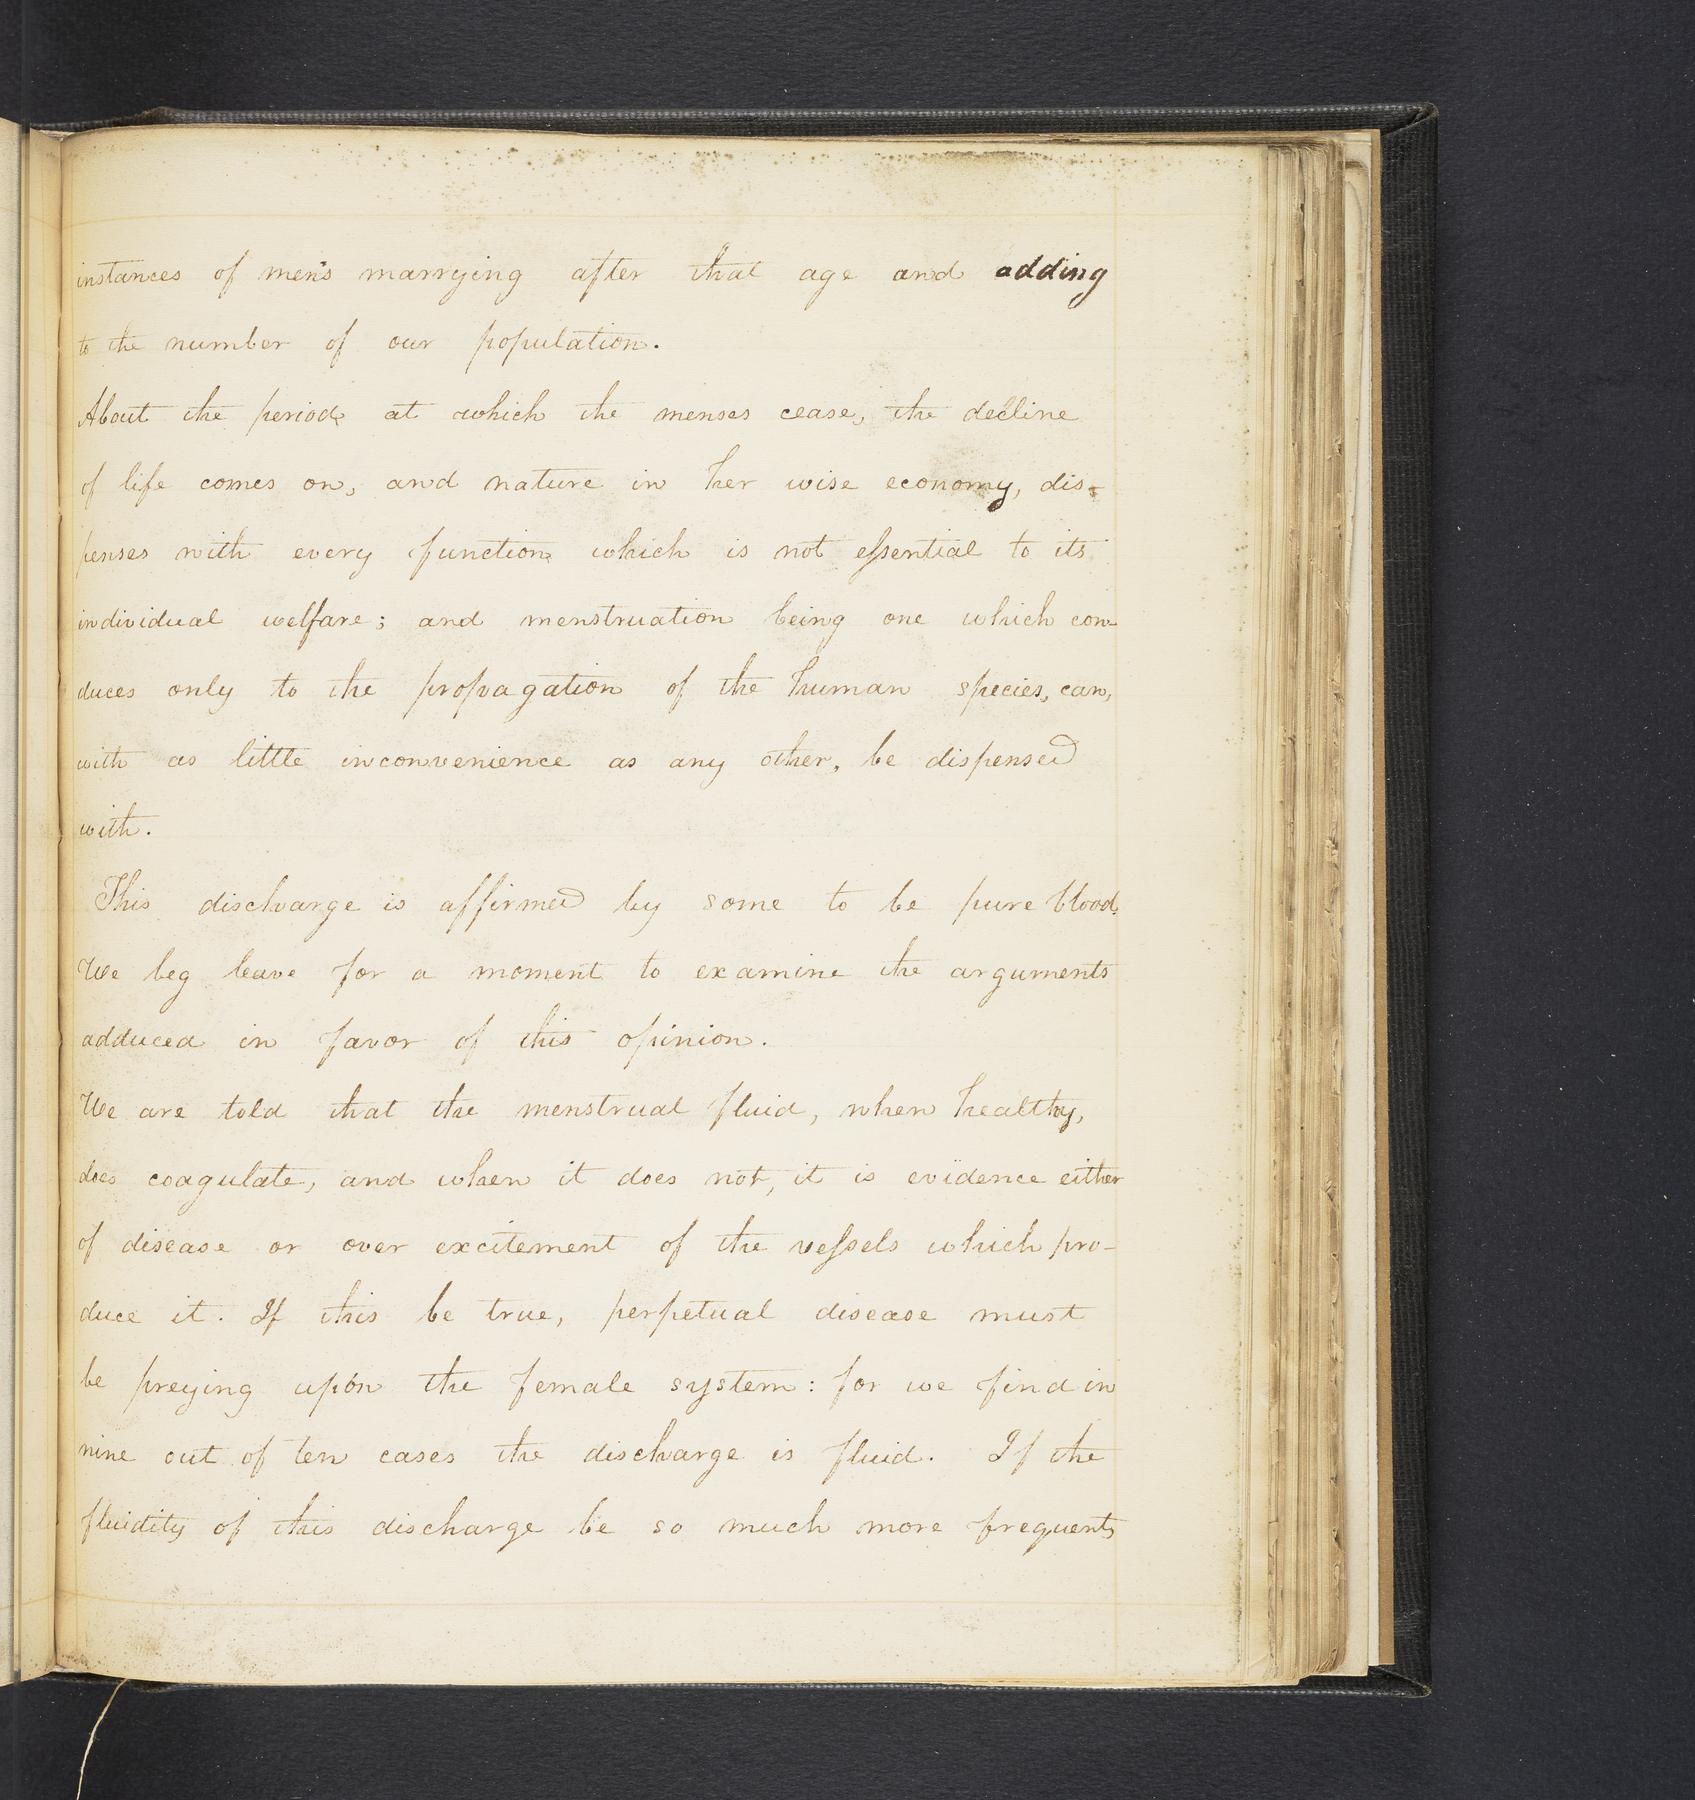 instances of men's marrying after that age and adding
to the number of our population.
About the period at which the menses cease, the decline
of life comes on, and nature in her wise economy, dis-
penses with every function which is not essential to its
individual welfare; and menstruation being one which con-
duces only to the propagation of the human species, can,
with as little inconvenience as any other, be dispensed
with.
This discharge is affirmed by some to be pure blood.
We beg leave for a moment to examine the arguments
adduced in favor of this opinion.
We are told that the menstrual fluid, when healthy,
does coagulate, and when it does not, it is evidence either
of disease or over excitement of the vessels which pro-
duce it. If this be true, perpetual disease must
be preying upon the female system: for we find in
nine out of ten cases the discharge is fluid. If the
fluidity of this discharge be so much more frequent